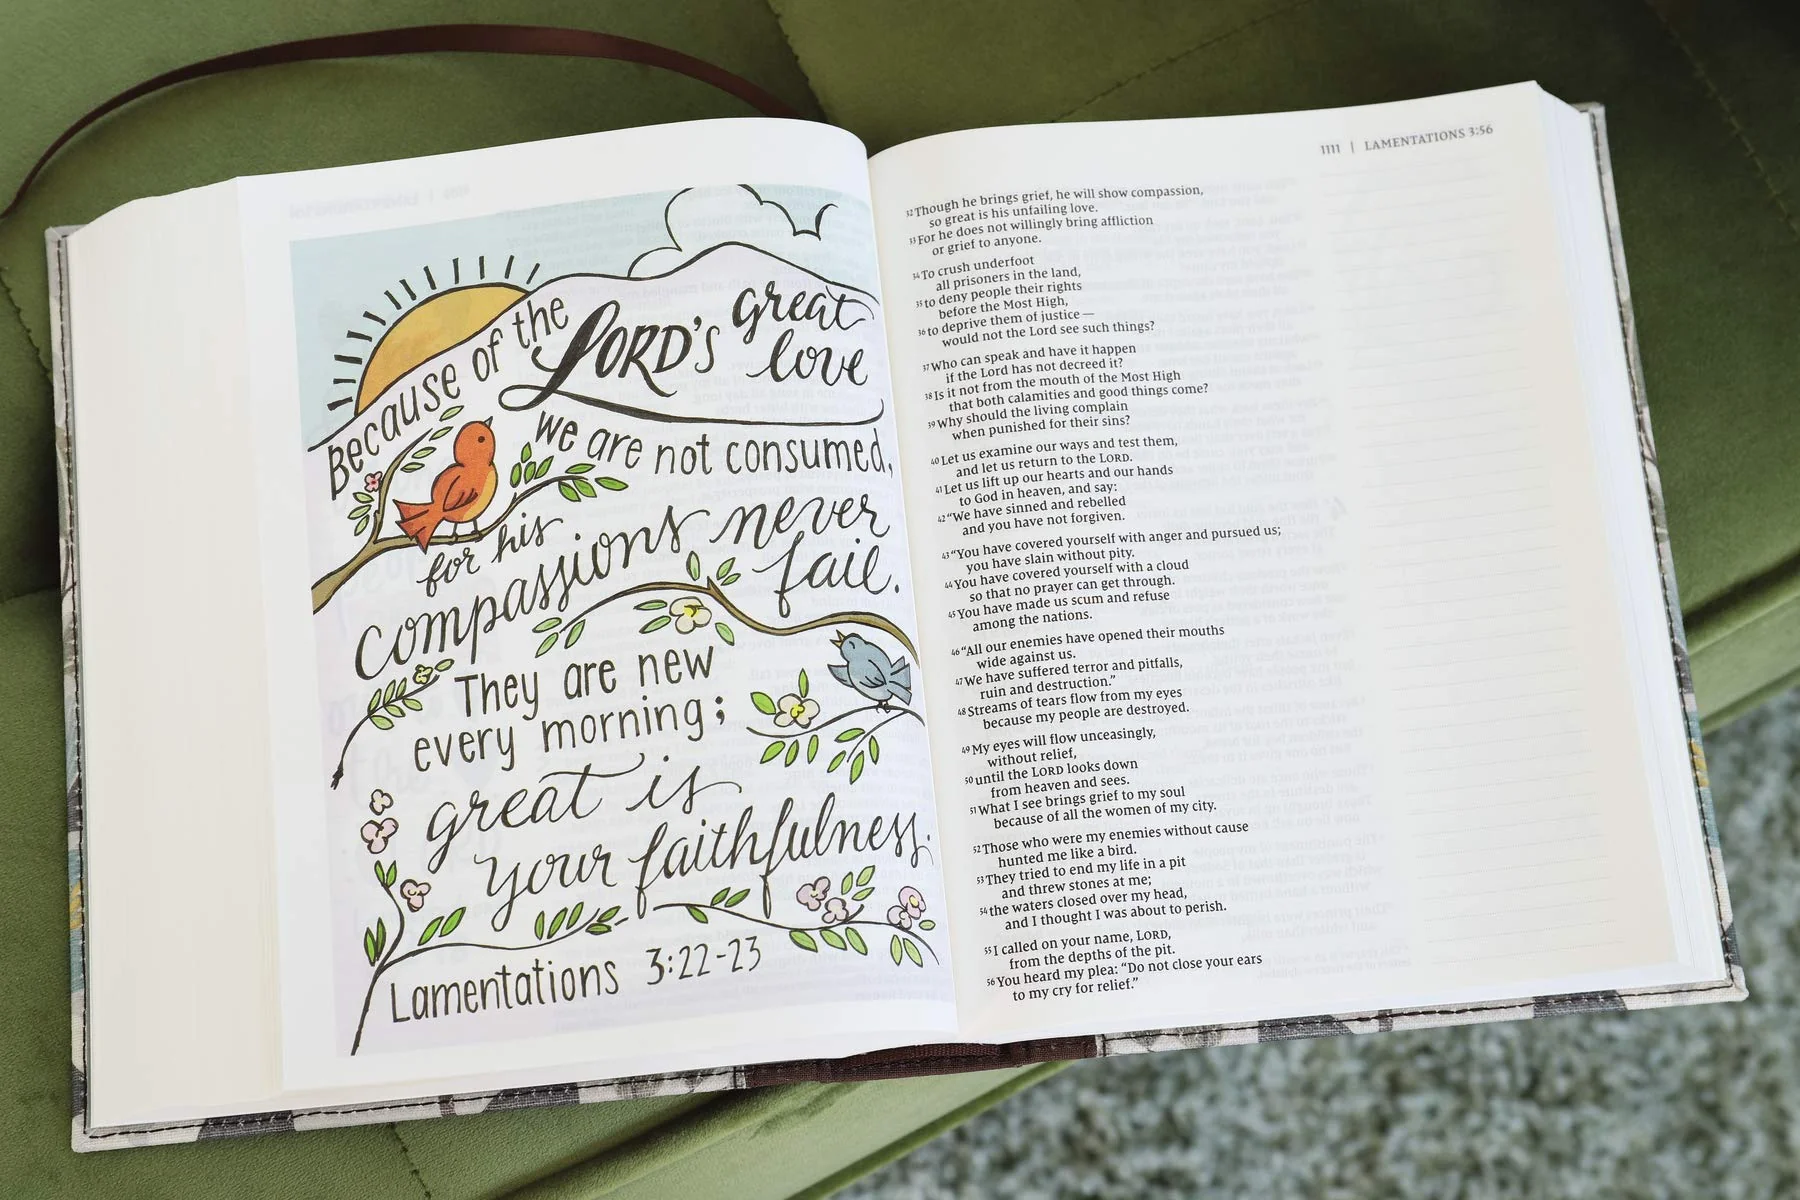 Because of the
LORD'S great
love
we are not consumed,
for his
compassions never
fail.
They are new
every morning;
great is
your faithfulness.
Lamentations 3:22-23
1111 | LAMENTATIONS 3:56
32 Though he brings grief, he will show compassion,
so great is his unfailing love.
33 For he does not willingly bring affliction
or grief to anyone.
34 To crush underfoot
all prisoners in the land,
35 to deny people their rights
before the Most High,
36 to deprive them of justice—
would not the Lord see such things?
37 Who can speak and have it happen
if the Lord has not decreed it?
38 Is it not from the mouth of the Most High
that both calamities and good things come?
39 Why should the living complain
when punished for their sins?
40 Let us examine our ways and test them,
and let us return to the LORD.
41 Let us lift up our hearts and our hands
to God in heaven, and say:
42 “We have sinned and rebelled
and you have not forgiven.
43 “You have covered yourself with anger and pursued us;
you have slain without pity.
44 You have covered yourself with a cloud
so that no prayer can get through.
45 You have made us scum and refuse
among the nations.
46 “All our enemies have opened their mouths
wide against us.
47 We have suffered terror and pitfalls,
ruin and destruction.”
48 Streams of tears flow from my eyes
because my people are destroyed.
49 My eyes will flow unceasingly,
without relief,
50 until the LORD looks down
from heaven and sees.
51 What I see brings grief to my soul
because of all the women of my city.
52 Those who were my enemies without cause
hunted me like a bird.
53 They tried to end my life in a pit
and threw stones at me;
54 the waters closed over my head,
and I thought I was about to perish.
55 I called on your name, LORD,
from the depths of the pit.
56 You heard my plea: “Do not close your ears
to my cry for relief.”